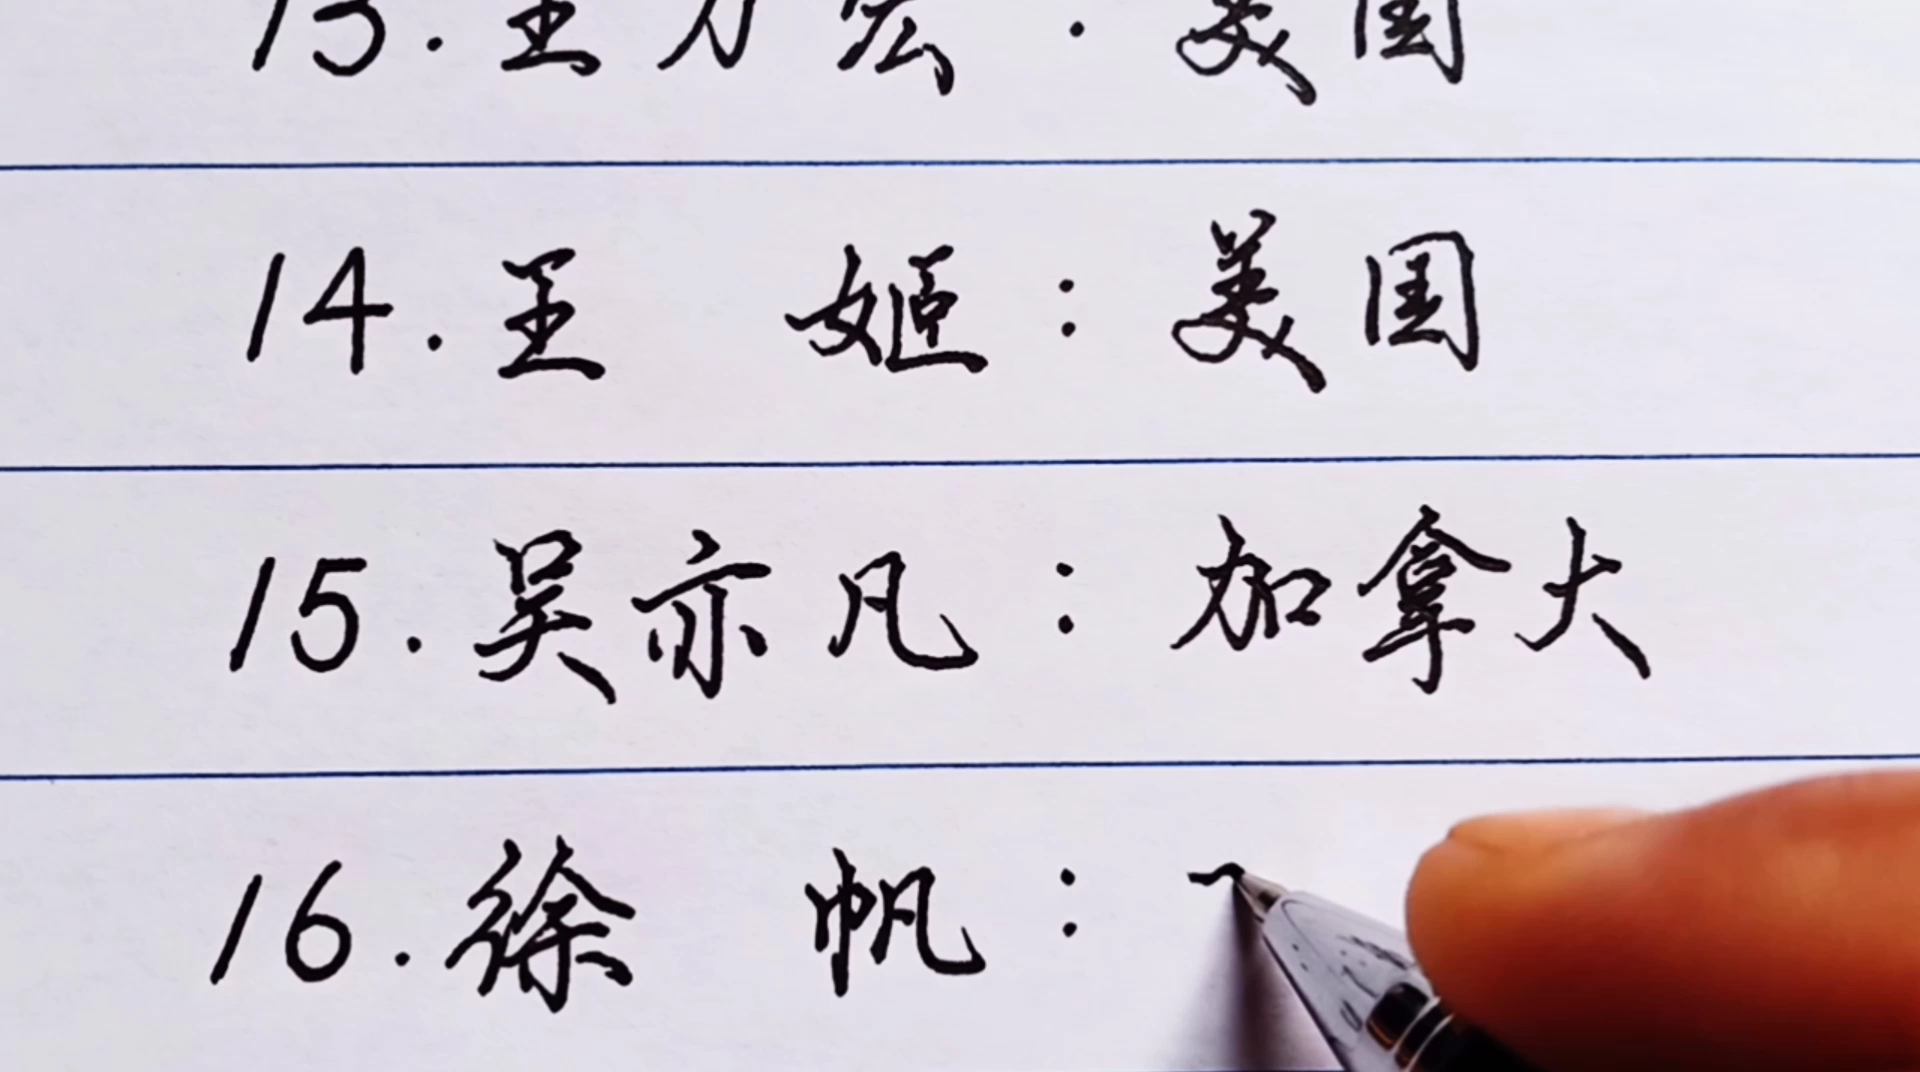 13.王力宏:美国
14.王姬:美国
15.吴亦凡:加拿大
16.徐帆: